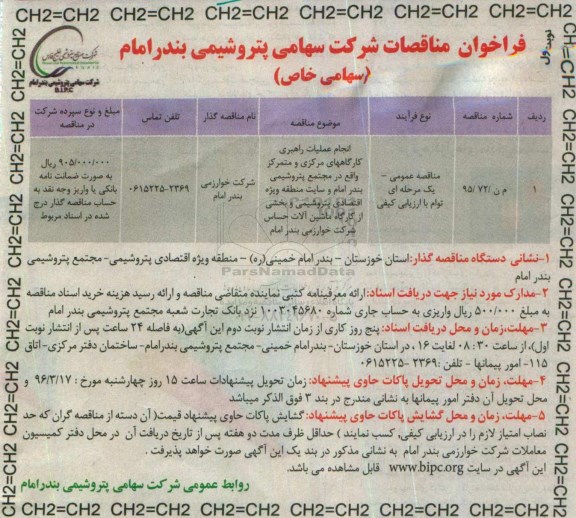 CH2=CH2 CH2=CH2 CH2=CH2 CH2=CH2 CH2=CH2 CH2=CH2 CH2=CH2
فراخوان مناقصات شرکت سهامی پتروشیمی بندرامام
(سهامی خاص)
نوبت اول
شرکت سهامی پتروشیمی بندرامام
B.I.P.C
ردیف شماره مناقصه نوع فرآیند موضوع مناقصه نام مناقصه گذار تلفن تماس مبلغ و نوع سپرده شرکت در مناقصه
۱
م ن /۷۲ /۹۵
مناقصه عمومی –
یک مرحله ای
توام با ارزیابی کیفی
انجام عملیات راهبری
کارگاههای مرکزی و متمرکز
واقع در مجتمع پتروشیمی
بندر امام و سایت منطقه ویژه
اقتصادی پتروشیمی و بخشی
از کارگاه ماشین آلات حساس
شرکت خوارزمی بندر امام
شرکت خوارزمی
بندر امام
۰۶۱۵۲۲۵-۲۳۶۹
۹۰۵/۰۰۰/۰۰۰ ریال
به صورت ضمانت نامه
بانکی یا واریز وجه نقد به
حساب مناقصه گذار درج
شده در اسناد مربوط
ParsNamadData
۱-نشانی دستگاه مناقصه گذار:استان خوزستان – بندر امام خمینی(ره) – منطقه ویژه اقتصادی پتروشیمی-مجتمع پتروشیمی
بندر امام
۲-مدارک مورد نیاز جهت دریافت اسناد:ارائه معرفینامه کتبی نماینده متقاضی مناقصه و ارائه رسید هزینه خرید اسناد مناقصه
به مبلغ ۵۰۰/۰۰۰ ریال واریزی به حساب جاری شماره ۱۰۰۳۰۴۵۶۸۰ نزد بانک تجارت شعبه مجتمع پتروشیمی بندر امام
۳-مهلت،زمان و محل دریافت اسناد: پنج روز کاری از زمان انتشار نوبت دوم این آگهی(به فاصله ۲۴ ساعت پس از انتشار نوبت
اول)، از ساعت ۳۰ : ۰۸ لغایت ۱۶ ، در استان خوزستان-بندرامام خمینی-مجتمع پتروشیمی بندرامام- ساختمان دفتر مرکزی-اتاق
۱۱۵- امور پیمانها - تلفن :۲۳۶۹ -۰۶۱۵۲۲۵
۴-مهلت، زمان و محل تحویل پاکات حاوی پیشنهاد: زمان تحویل پیشنهادات ساعت ۱۵ روز چهارشنبه مورخ : ۹۶/۳/۱۷ و
محل تحویل آن دفتر امور پیمانها به نشانی مندرج در بند ۳ فوق الذکر میباشد
۵-مهلت، زمان و محل گشایش پاکات حاوی پیشنهاد: گشایش پاکات حاوی پیشنهاد قیمت( آن دسته از مناقصه گران که حد
نصاب امتیاز لازم را در ارزیابی کیفی، کسب نمایند ) حداقل ظرف مدت دو هفته پس از تاریخ دریافت آن در محل دفتر کمیسیون
معاملات شرکت خوارزمی بندر امام به نشانی مذکور در بند یک این آگهی صورت خواهد پذیرفت .
این آگهی در سایت www.bipc.org قابل مشاهده می باشد.
روابط عمومی شرکت سهامی پتروشیمی بندرامام
CH2=CH2 CH2=CH2 CH2=CH2 CH2=CH2 CH2=CH2 CH2=CH2 CH2=CH2